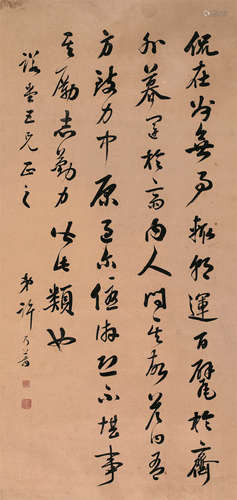 侃在州無事輒朝運百甓於齋
外暮運於齋內人問其故答曰吾
方致力中原過尔優游恐不堪事
其勵志勤力皆此類也
堂五兄正之
弟許乃普